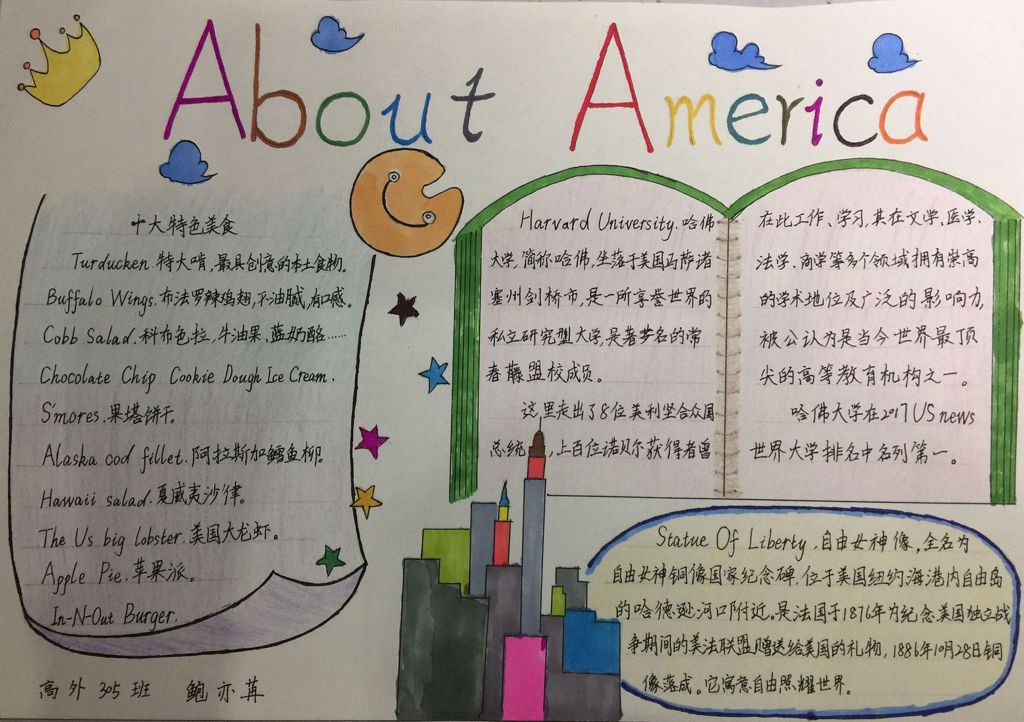 About America
十大特色美食
Turducken.特大啃,最具创意的本土食物。
Buffalo Wings.布法罗辣鸡翅,不油腻,有口感。
Cobb Salad.科布色拉,牛油果、蓝奶酪……
Chocolate Chip Cookie Dough Ice Cream.
S'mores.果塔饼干。
Alaska cod fillet.阿拉斯加鳕鱼柳。
Hawaii salad.夏威夷沙律。
The Us big lobster.美国大龙虾。
Apple Pie.苹果派。
In-N-Out Burger.
Harvard University.哈佛
大学,简称哈佛,坐落于美国马萨诸
塞州剑桥市,是一所享誉世界的
私立研究型大学,是著名的常
春藤盟校成员。
这里走出了8位美利坚合众国
总统,上百位诺贝尔获得者曾
在此工作、学习,其在文学、医学、
法学、商学等多个领域拥有崇高
的学术地位及广泛的影响力,
被公认为是当今世界最顶
尖的高等教育机构之一。
哈佛大学在2017 US news
世界大学排名中名列第一。
Statue Of Liberty.自由女神像,全名为
自由女神铜像国家纪念碑,位于美国纽约海港内自由岛
的哈德逊河口附近。是法国于1876年为纪念美国独立战
争期间的美法联盟赠送给美国的礼物,1886年10月28日铜
像落成。它寓意自由照耀世界。
高外 305班 鲍亦苒